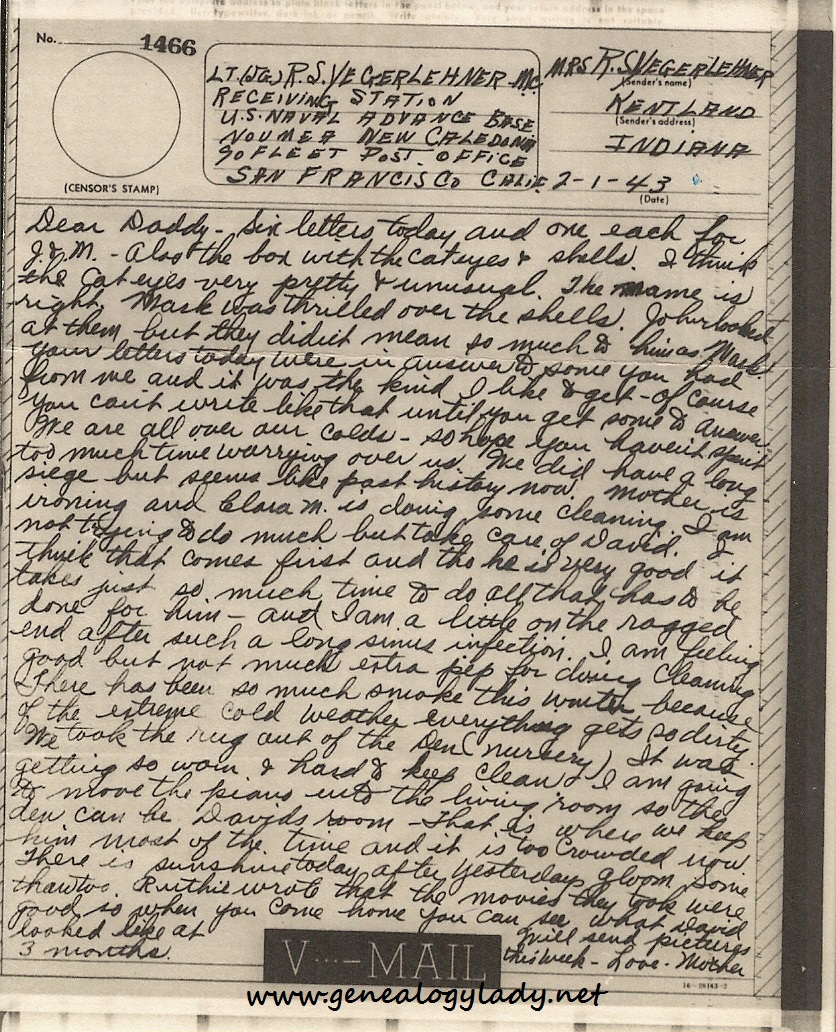 No. 1466
(CENSOR'S STAMP)
LT.(JG.) R.S. VEGERLEHNER-MC
RECEIVING STATION
U.S. NAVAL ADVANCE BASE
NOUMEA NEW CALEDONIA
℅ FLEET POST OFFICE
SAN FRANCISCO CALIF
MRS R.S. VEGERLEHNER
(Sender's name)
KENTLAND
(Sender's address)
INDIANA
2-1-43
(Date)
Dear Daddy- Six letters today and one each for
J. & M. - Also the box with the cat eyes & shells. I think
the Cat eyes very pretty & unusual. The name is
right. Mark was thrilled over the shells. John looked
at them but they didn't mean so much to him as Mark.
Your letters today were in answer to some you had
from me and it was the kind I like to get - of course
you can't write like that until you get some to answer.
We are all over our colds - so hope you haven't spent
too much time worrying over us. We did have a long
siege but seems like past history now. Mother is
ironing and Clara M. is doing some cleaning. I am
not trying to do much but take care of David. I
think that comes first and tho he is very good it
takes just so much time to do all that has to be
done for him - and I am a little on the ragged
end after such a long sinus infection. I am feeling
good but not much extra pep for doing cleaning
There has been so much smoke this winter because
of the extreme cold weather everything gets so dirty.
We took the rug out of the Den (nursery) It was
getting so worn & hard to keep clean & I am going
to move the piano into the living room so the
den can be Davids room - That is where we keep
him most of the time and it is too crowded now
There is sunshine today after yesterdays gloom. Some
thaw too. Ruthie wrote that the movies they took were
good so when you come home you can see what David
looked like at
3 months.
Will send pictures
this week - Love - Mother
V···—MAIL
16-28143-2
www.genealogylady.net